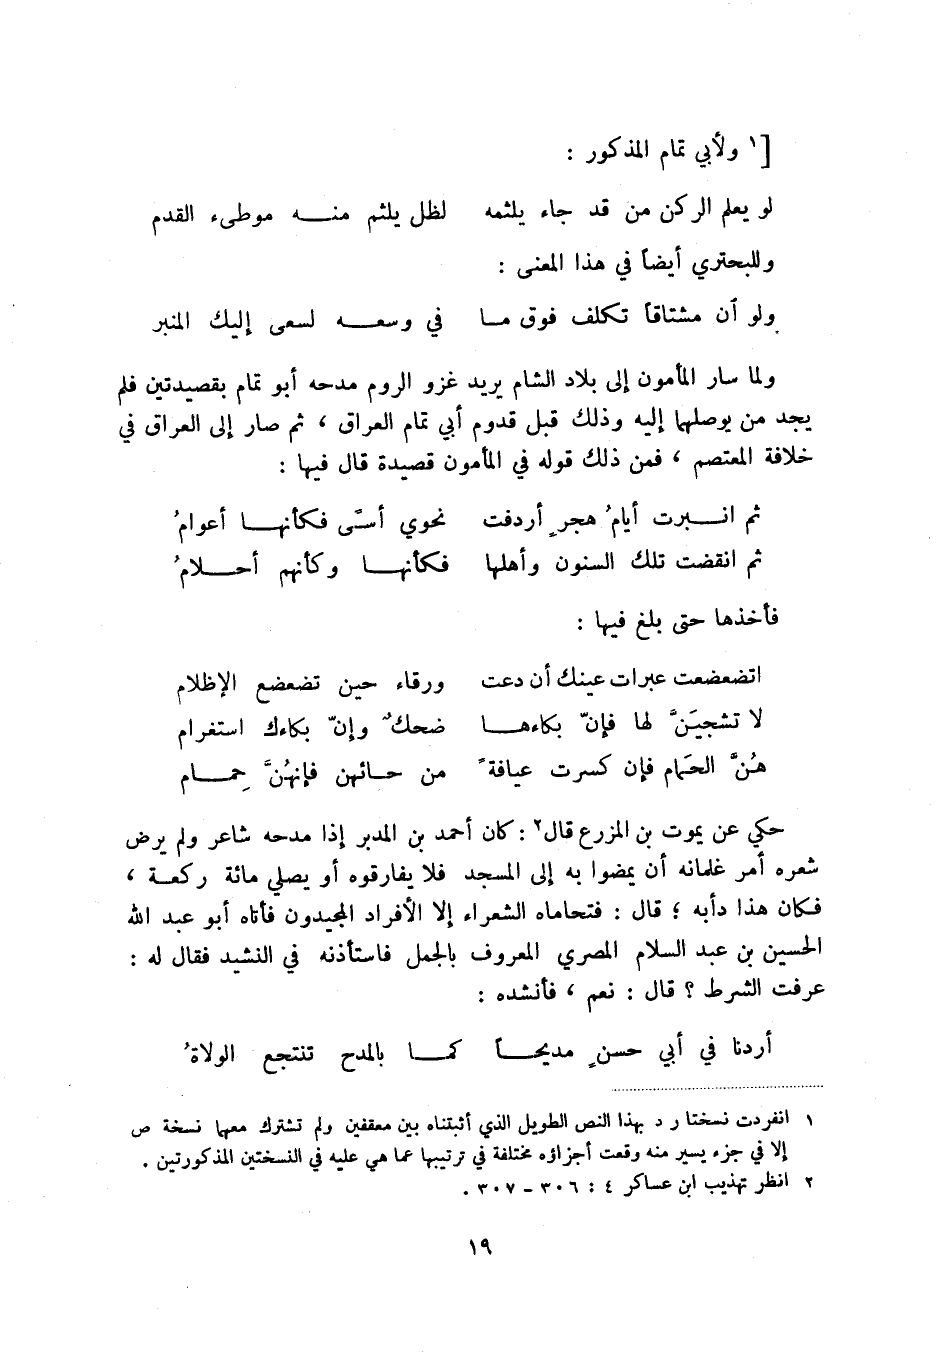 [¹ ولأبي تمام المذكور :
لو يعلم الركن من قد جاء يلثمه لظل يلثم منـــه موطىء القدم
وللبحتري أيضاً في هذا المعنى :
ولو أن مشتاقاً تكلف فوق مــا في وسعــه لسعى إليك المنبر
ولما سار المأمون إلى بلاد الشام يريد غزو الروم مدحه أبو تمام بقصيدتين فلم
يجد من يوصلها إليه وذلك قبل قدوم أبي تمام العراق ، ثم صار إلى العراق في
خلافة المعتصم ، فمن ذلك قوله في المأمون قصيدة قال فيها :
ثم انــبرت أيامُ هجرٍ أردفت نحوي أسىً فكأنهــا أعوامُ
ثم انقضت تلك السنون وأهلها فكأنهــا وكأنهم أحــلامُ
فأخذها حتى بلغ فيها :
اتضعضعت عبرات عينك أن دعت ورقاء حين تضعضع الإظلام
لا تشجيَنَّ لها فإنّ بكاءهــا ضحكٌ وإنّ بكاءك استغرام
هُنَّ الحمام فإن كسرت عيافةً من حــائهن فإنهُنَّ حِمــام
حكي عن يموت بن المزرع قال² : كان أحمد بن المدبر إذا مدحه شاعر ولم يرض
شعره أمر غلمانه أن يمضوا به إلى المسجد فلا يفارقوه أو يصلي مائة ركعــة ،
فكان هذا دأبه ؛ قال : فتحاماه الشعراء إلا الأفراد المجيدون فأتاه أبو عبد الله
الحسين بن عبد السلام المصري المعروف بالجمل فاستأذنه في النشيد فقال له :
عرفت الشرط ؟ قال : نعم ، فأنشده :
أردنا في أبي حسنٍ مديحــاً كمــا بالمدح تنتجع الولاةُ
١ انفردت نسختا ر د بهذا النص الطويل الذي أثبتناه بين معقفين ولم تشترك معها نسخة ص
إلا في جزء يسير منه وقعت أجزاؤه مختلفة في ترتيبها عما هي عليه في النسختين المذكورتين .
٢ انظر تهذيب ابن عساكر ٤ : ٣٠٦ - ٣٠٧ .
١٩